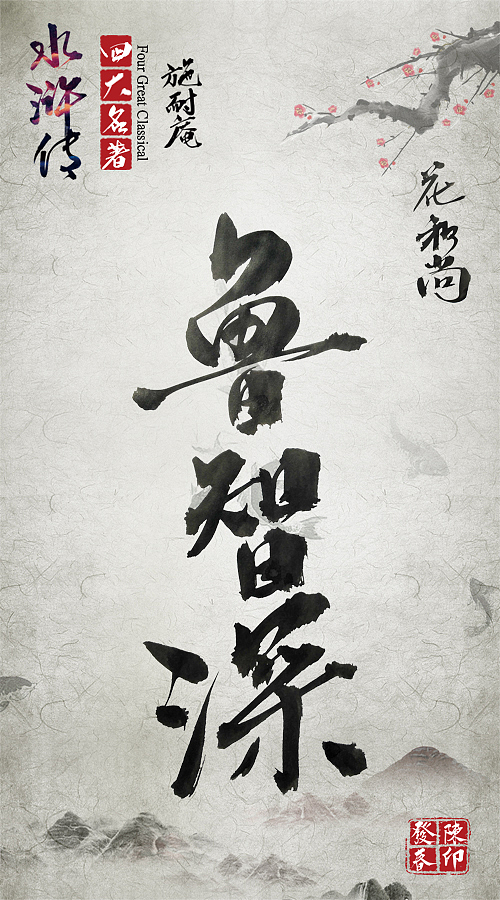 水浒传
四大名著
Four Great Classical
施耐庵
花和尚
鲁智深
陳印
發春